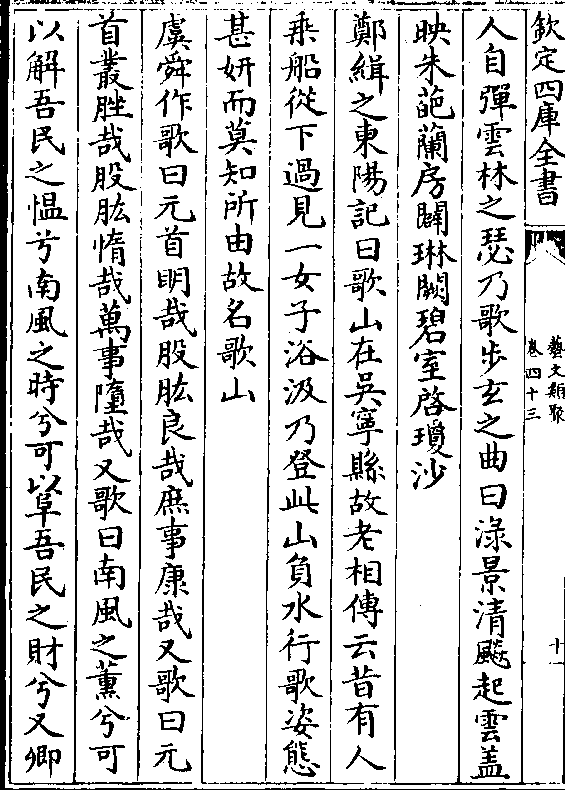 欽定四庫全書
藝文類聚
卷四十三
十一
人自彈雲林之瑟乃歌步玄之曲曰渌景清飈起雲盖
映朱葩蘭房闢琳闕碧室啓瓊沙
鄭緝之東陽記曰歌山在吳寧縣故老相傳云昔有人
乘船從下過見一女子浴汲乃登此山負水行歌姿態
甚妍而莫知所由故名歌山
虞舜作歌曰元首明哉股肱良哉庶事康哉又歌曰元
首叢脞哉股肱惰哉萬事墮哉又歌曰南風之薰兮可
以解吾民之愠兮南風之時兮可以阜吾民之財兮又卿